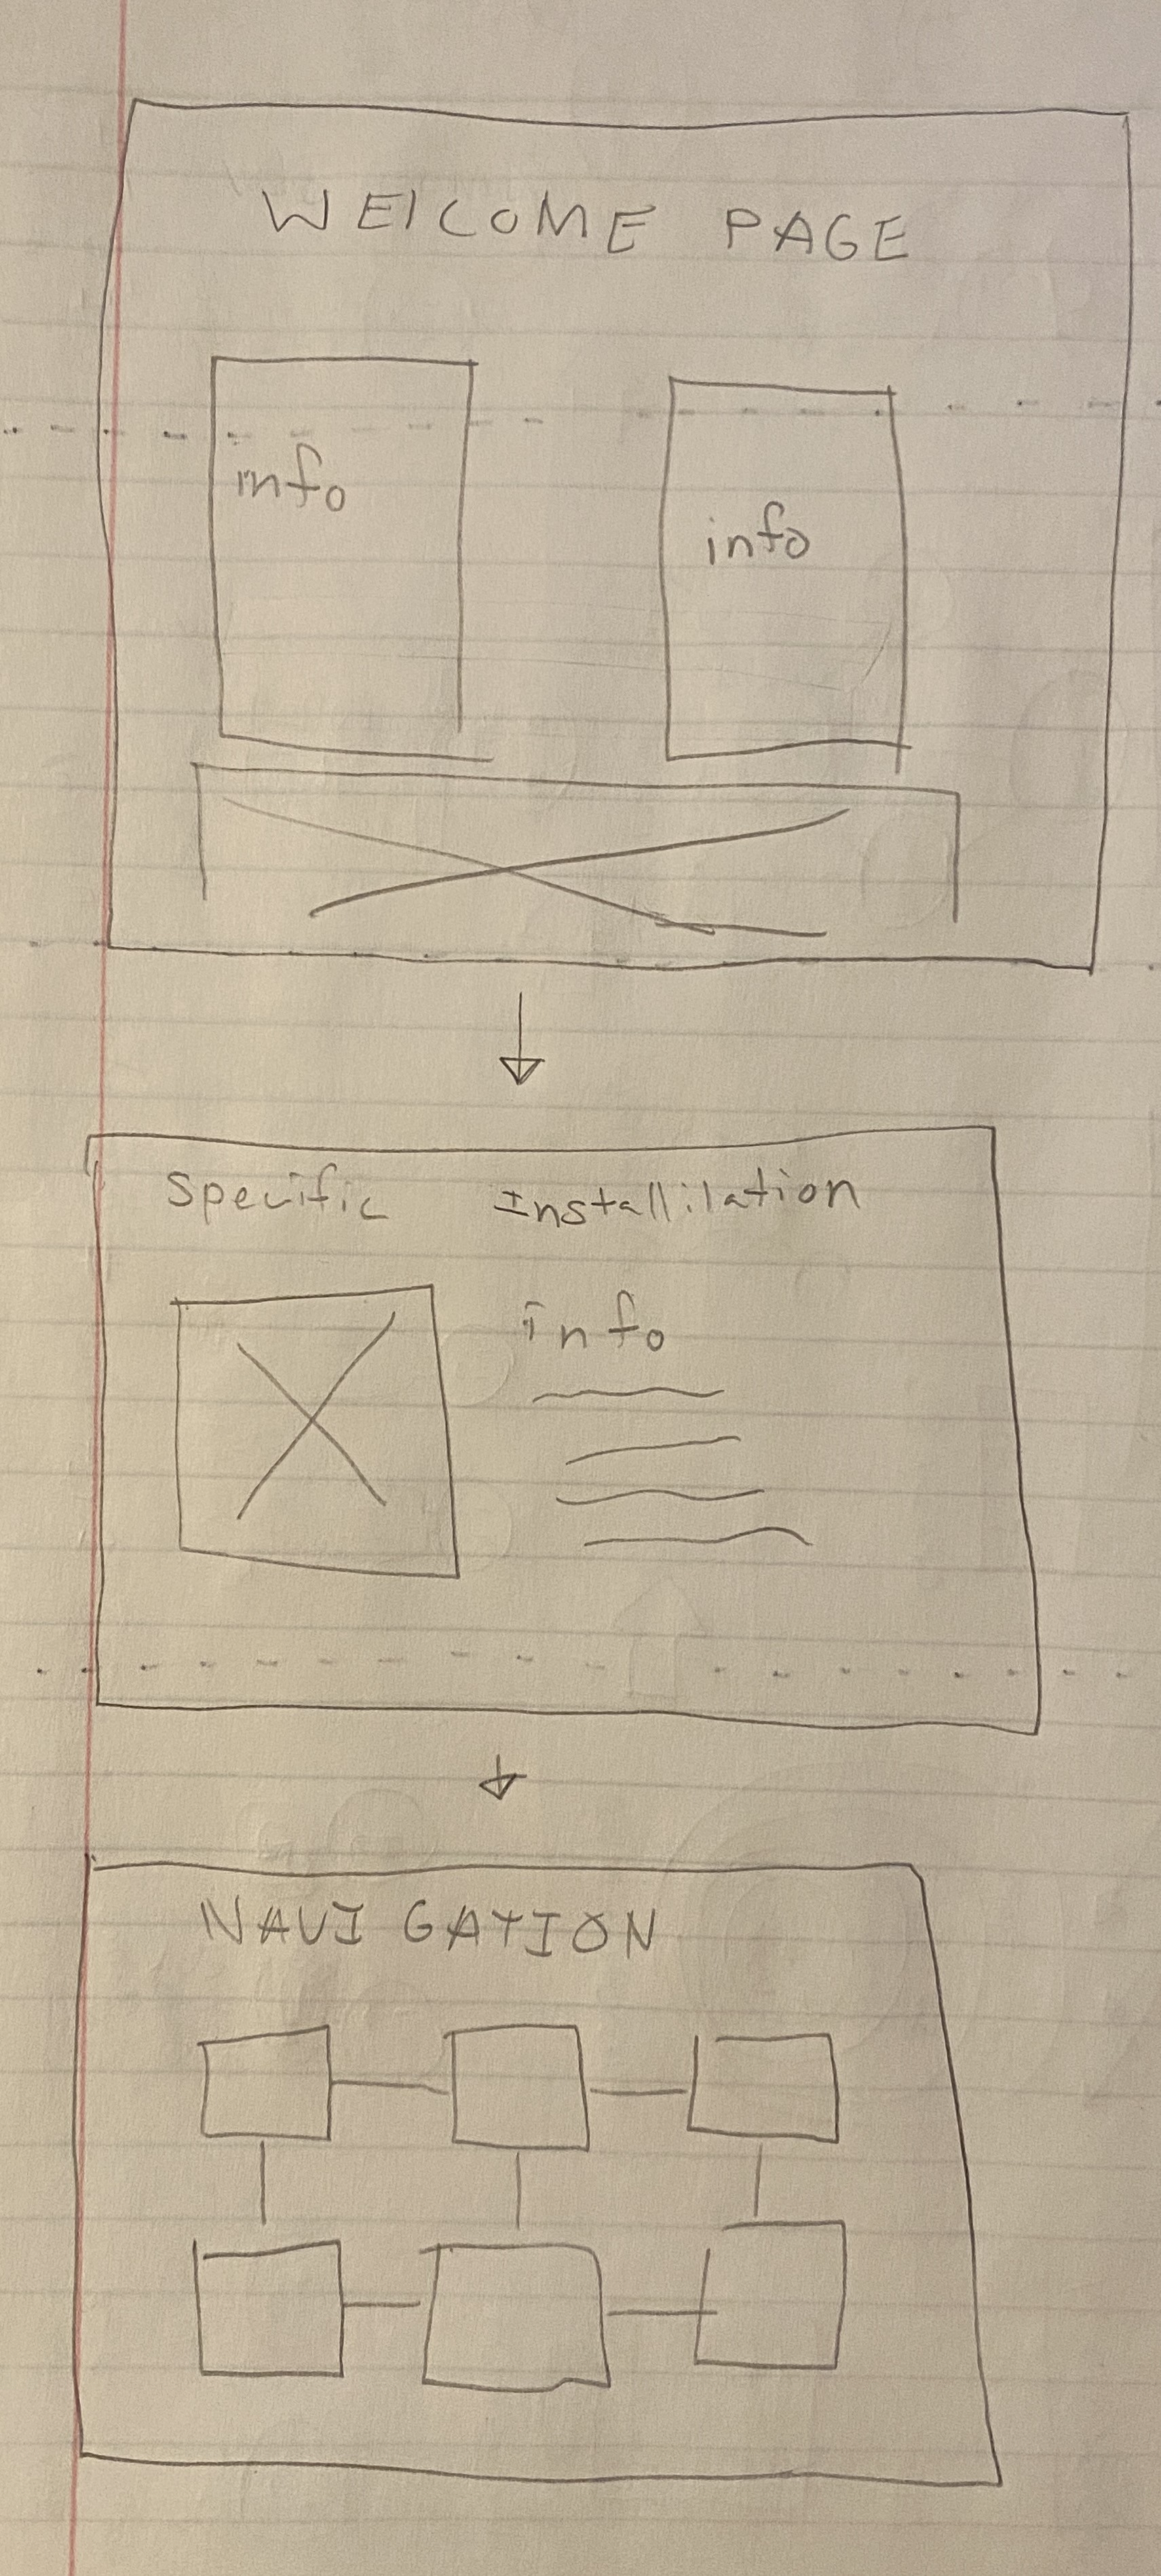 WElCOME PAGE
info
info
Specific Installilation
info
NAVIGATION